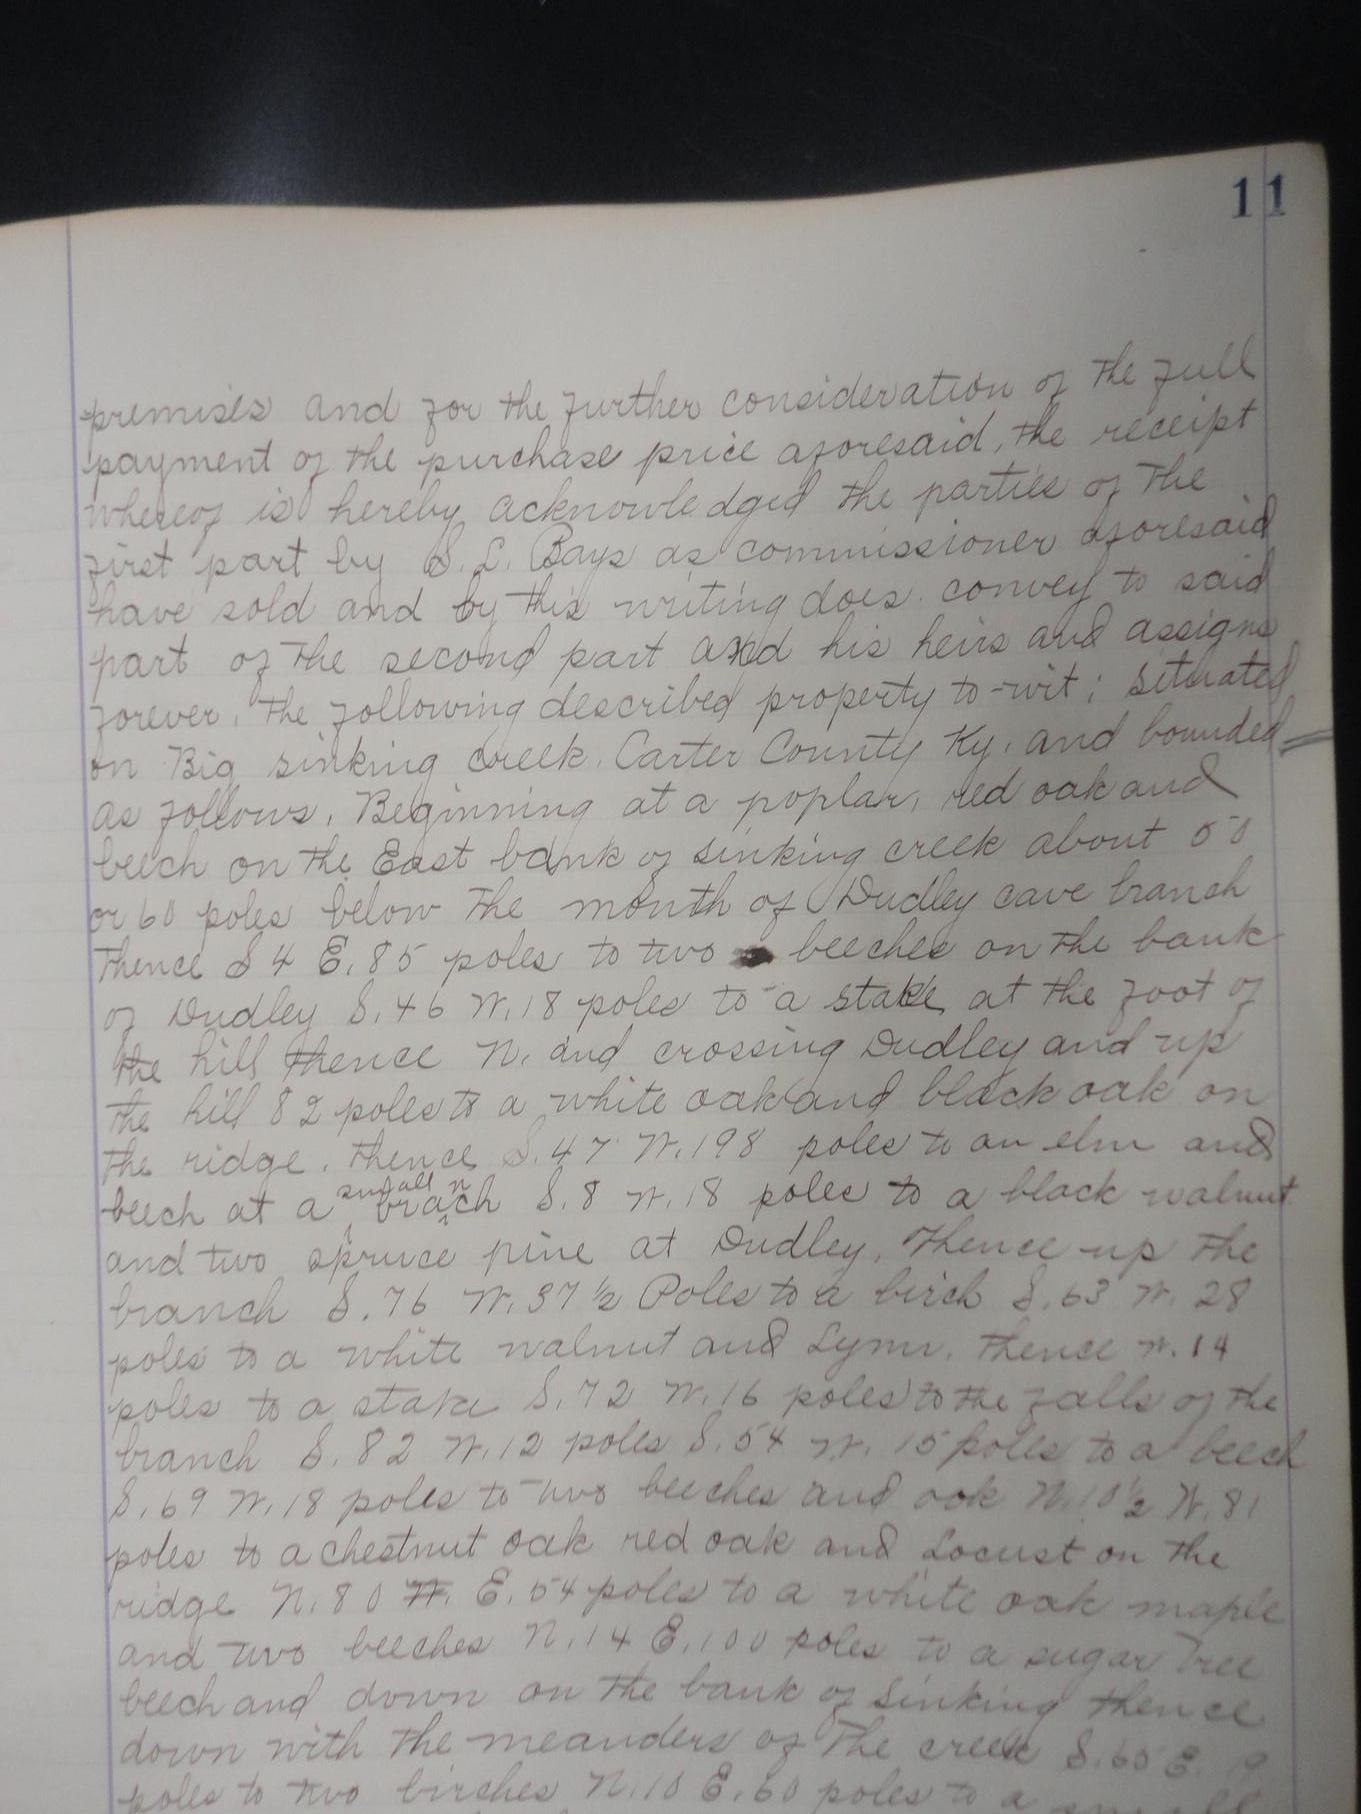 11
premises and for the further consideration of the full
payment of the purchase price aforesaid, the receipt
whereof is hereby acknowledged the parties of the
first part by S. L. Bays as commissioner aforesaid
have sold and by this writing does convey to said
part of the second part and his heirs and assigns
forever, the following described property to-wit; situated
on Big sinking creek. Carter County Ky, and bounded
as follows, Beginning at a poplar, red oak and
beech on the East bank of sinking creek about 50
or 60 poles below the mouth of Dudley cave branch
thence S 4 E. 85 poles to two beeches on the bank
of Dudley S. 46 W. 18 poles to a stake at the foot of
the hill thence N. and crossing Dudley and up
the hill 82 poles to a white oak and black oak on
the ridge. thence S. 47 W. 198 poles to an elm and
beech at a small branch S. 8 W. 18 poles to a black walnut
and two spruce pine at Dudley. Thence up the
branch S. 76 W. 37 ½ Poles to a birch S. 63 W. 28
poles to a white walnut and Lynn. thence W. 14
poles to a stake S. 72 W. 16 poles to the falls of the
branch S. 82 W. 12 poles S. 54 W. 15 poles to a beech
S. 69 W. 18 poles to two beeches and ook N. 10 ½ W. 81
poles to a chestnut oak red oak and Locust on the
ridge N. 80 W. E. 54 poles to a white oak maple
and two beeches N. 14 E. 100 poles to a sugar tree
beech and down on the bank of sinking thence
down with the meanders of the creek S. 65 E. 19
poles to two birches N. 10 E. 60 poles to a small